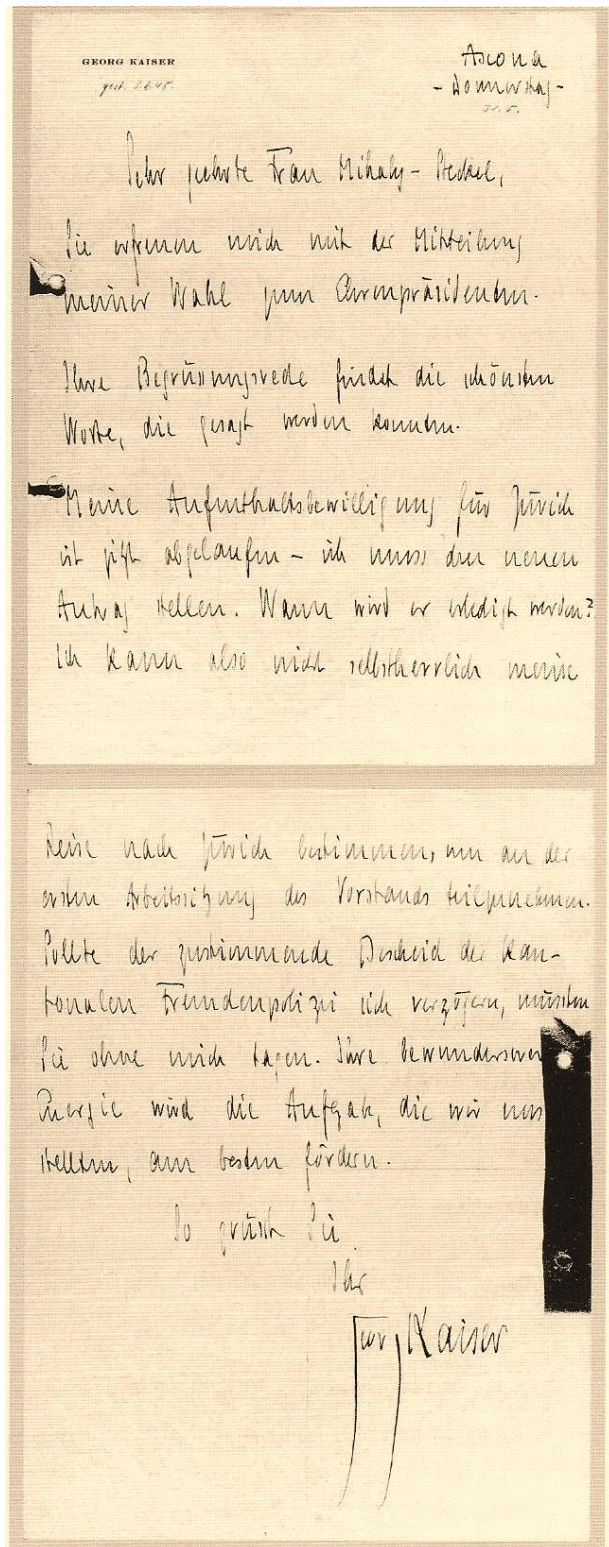 GEORG KAISER
gest. 4.6.45.
Ascona
- Donnerstag -
31.5.
Sehr geehrte Frau Mihaly-Steckel,
Sie erfreuen mich mit der Mitteilung
meiner Wahl zum Ehrenpräsidenten.
Ihre Begrüssungsrede findet die schönsten
Worte, die gesagt werden konnten.
Meine Aufenthaltsbewilligung für Zürich
ist jetzt abgelaufen – ich muss den neuen
Antrag stellen. Wann wird er erledigt werden?
Ich kann also nicht selbstherrlich meine
Reise nach Zürich bestimmen, um an der
ersten Arbeitssitzung des Vorstands teilzunehmen.
Sollte der zustimmende Bescheid der Kan-
tonalen Fremdenpolizei sich verzögern, müssten
Sie ohne mich tagen. Ihre bewundernswer
Energie wird die Aufgabe, die wir uns
stellten, am besten fördern.
So grüsst Sie
Ihr
Georg Kaiser